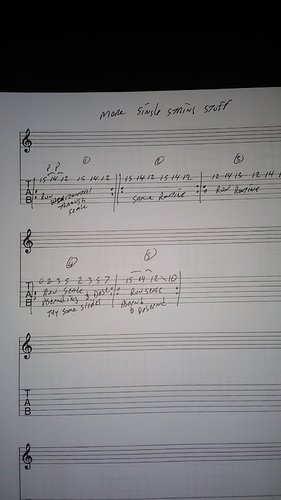 more single string stuff
P P ① ② ③
15 14 12 15 14 12 15 14 12 15 14 12 12 14 15 12 14
TAB Run horizontal Same Routine Run Routine
through
scale
④ ⑤
0 2 3 5 2 3 5 7 15 14 12 10
TAB Run scale Run scale
Ascending & Desc Ascend
Try some slides & Descend
TAB